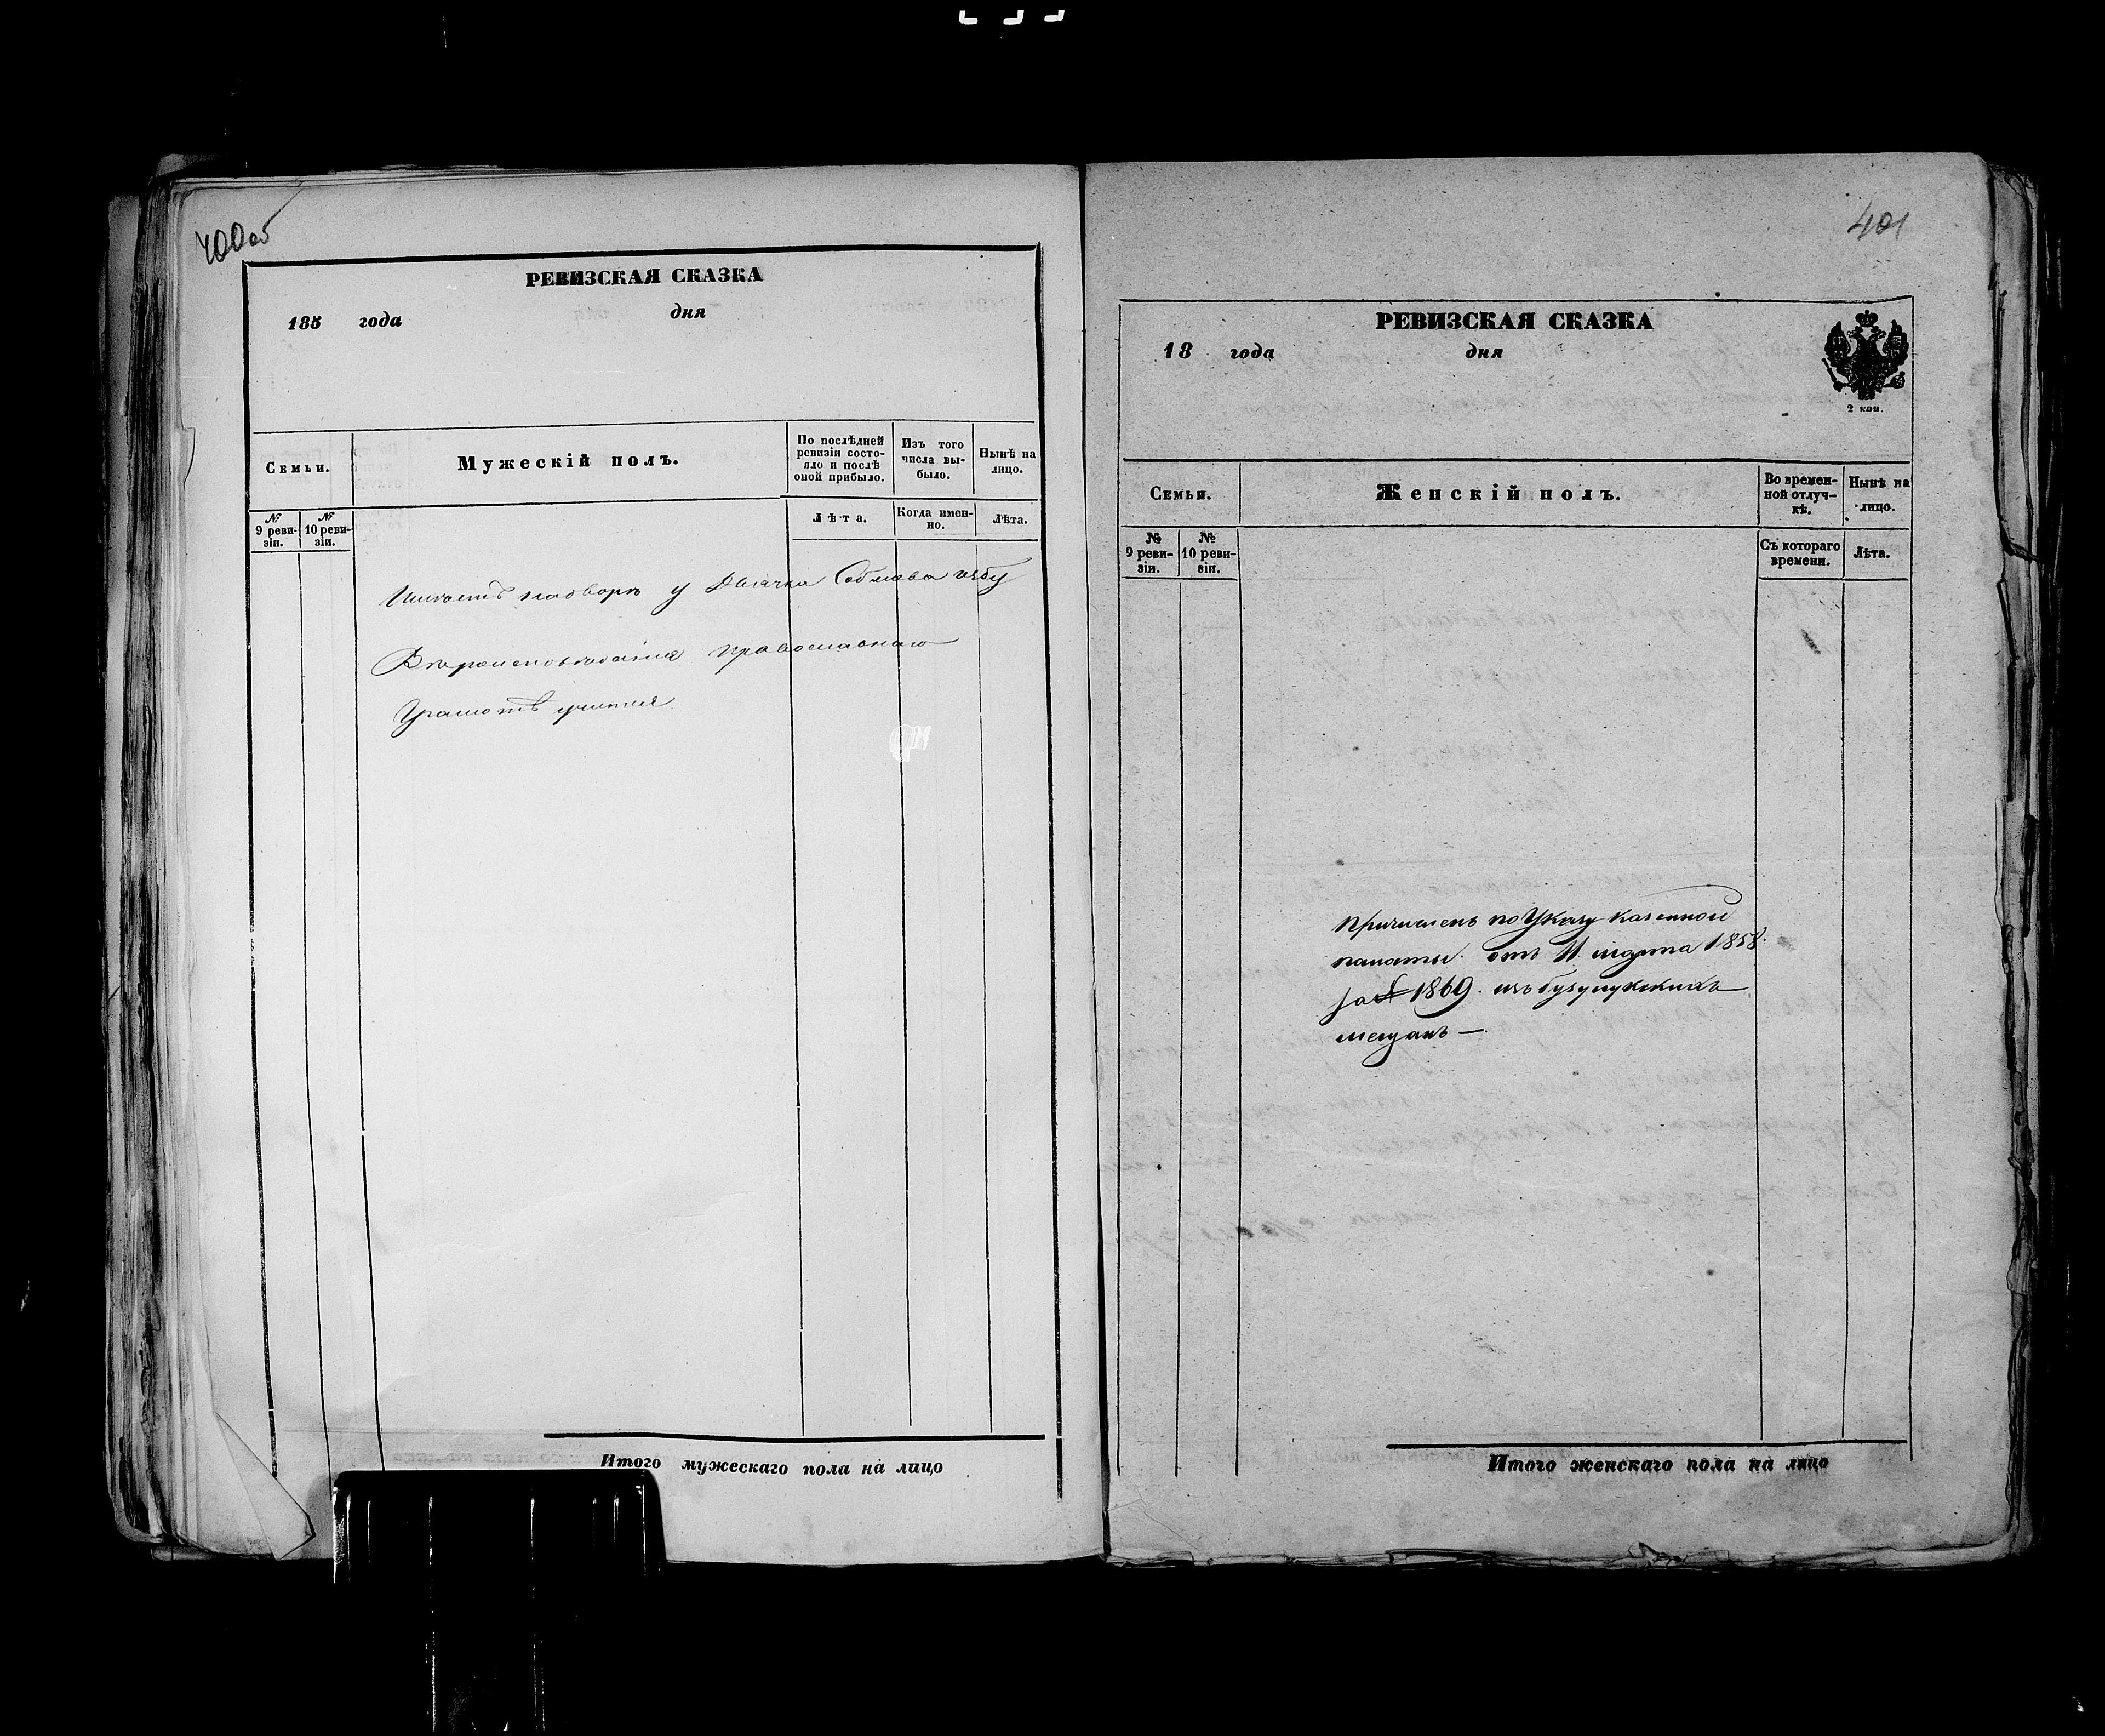 400об
РЕВИЗСКАЯ СКАЗКА
185 года дня
Семьи.
Мужескій полъ.
По послѣдней ревизіи состо-яло и послѣ оной прибыло.
Изъ того числа вы-было.
Нынѣ на лицо.
№ 9 реви-зіи.
№ 10 реви-зіи.
Лѣта.
Когда имен-но.
Лѣта.
Имѣетъ надворъ у Дьячка избу
Вѣроисповѣданія православнаго
Грамотѣ учится
Итого мужескаго пола на лицо
401
РЕВИЗСКАЯ СКАЗКА
18 года дня
2 коп.
Семьи.
Женскій полъ.
Во времен-ной отлуч-кѣ.
Нынѣ на лицо.
№ 9 реви-зіи.
№ 10 реви-зіи.
Съ котораго времени.
Лѣта.
Причисленъ по Указу казенной
палаты. отъ 11 марта 1858.
за № 1869. изъ бузулукскихъ
мещанъ —
Итого женскаго пола на лицо